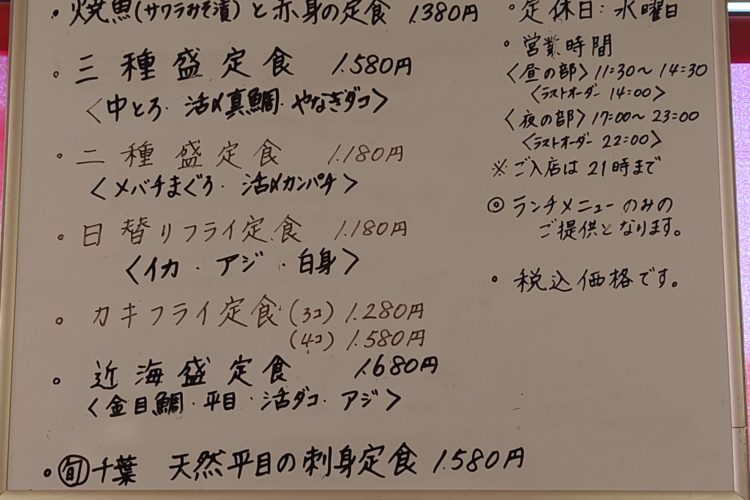 ・焼魚(サワラみそ漬)と赤身の定食 1.380円
・三種盛定食 1.580円
〈中とろ・活〆真鯛・やなぎダコ〉
・二種盛定食 1.180円
〈メバチまぐろ・活〆カンパチ〉
・日替りフライ定食 1.180円
〈イカ・アジ・白身〉
・カキフライ定食(3コ) 1.280円
(4コ) 1.580円
・近海盛定食 1.680円
〈金目鯛・平目・活ダコ・アジ〉
・旬千葉 天然平目の刺身定食 1.580円
・定休日:水曜日
・営業時間
〈昼の部〉11:30〜14:30
〈ラストオーダー 14:00〉
〈夜の部〉17:00〜23:00
〈ラストオーダー 22:00〉
※ご入店は21時まで
◎ランチメニューのみの
ご提供となります。
・税込価格です。